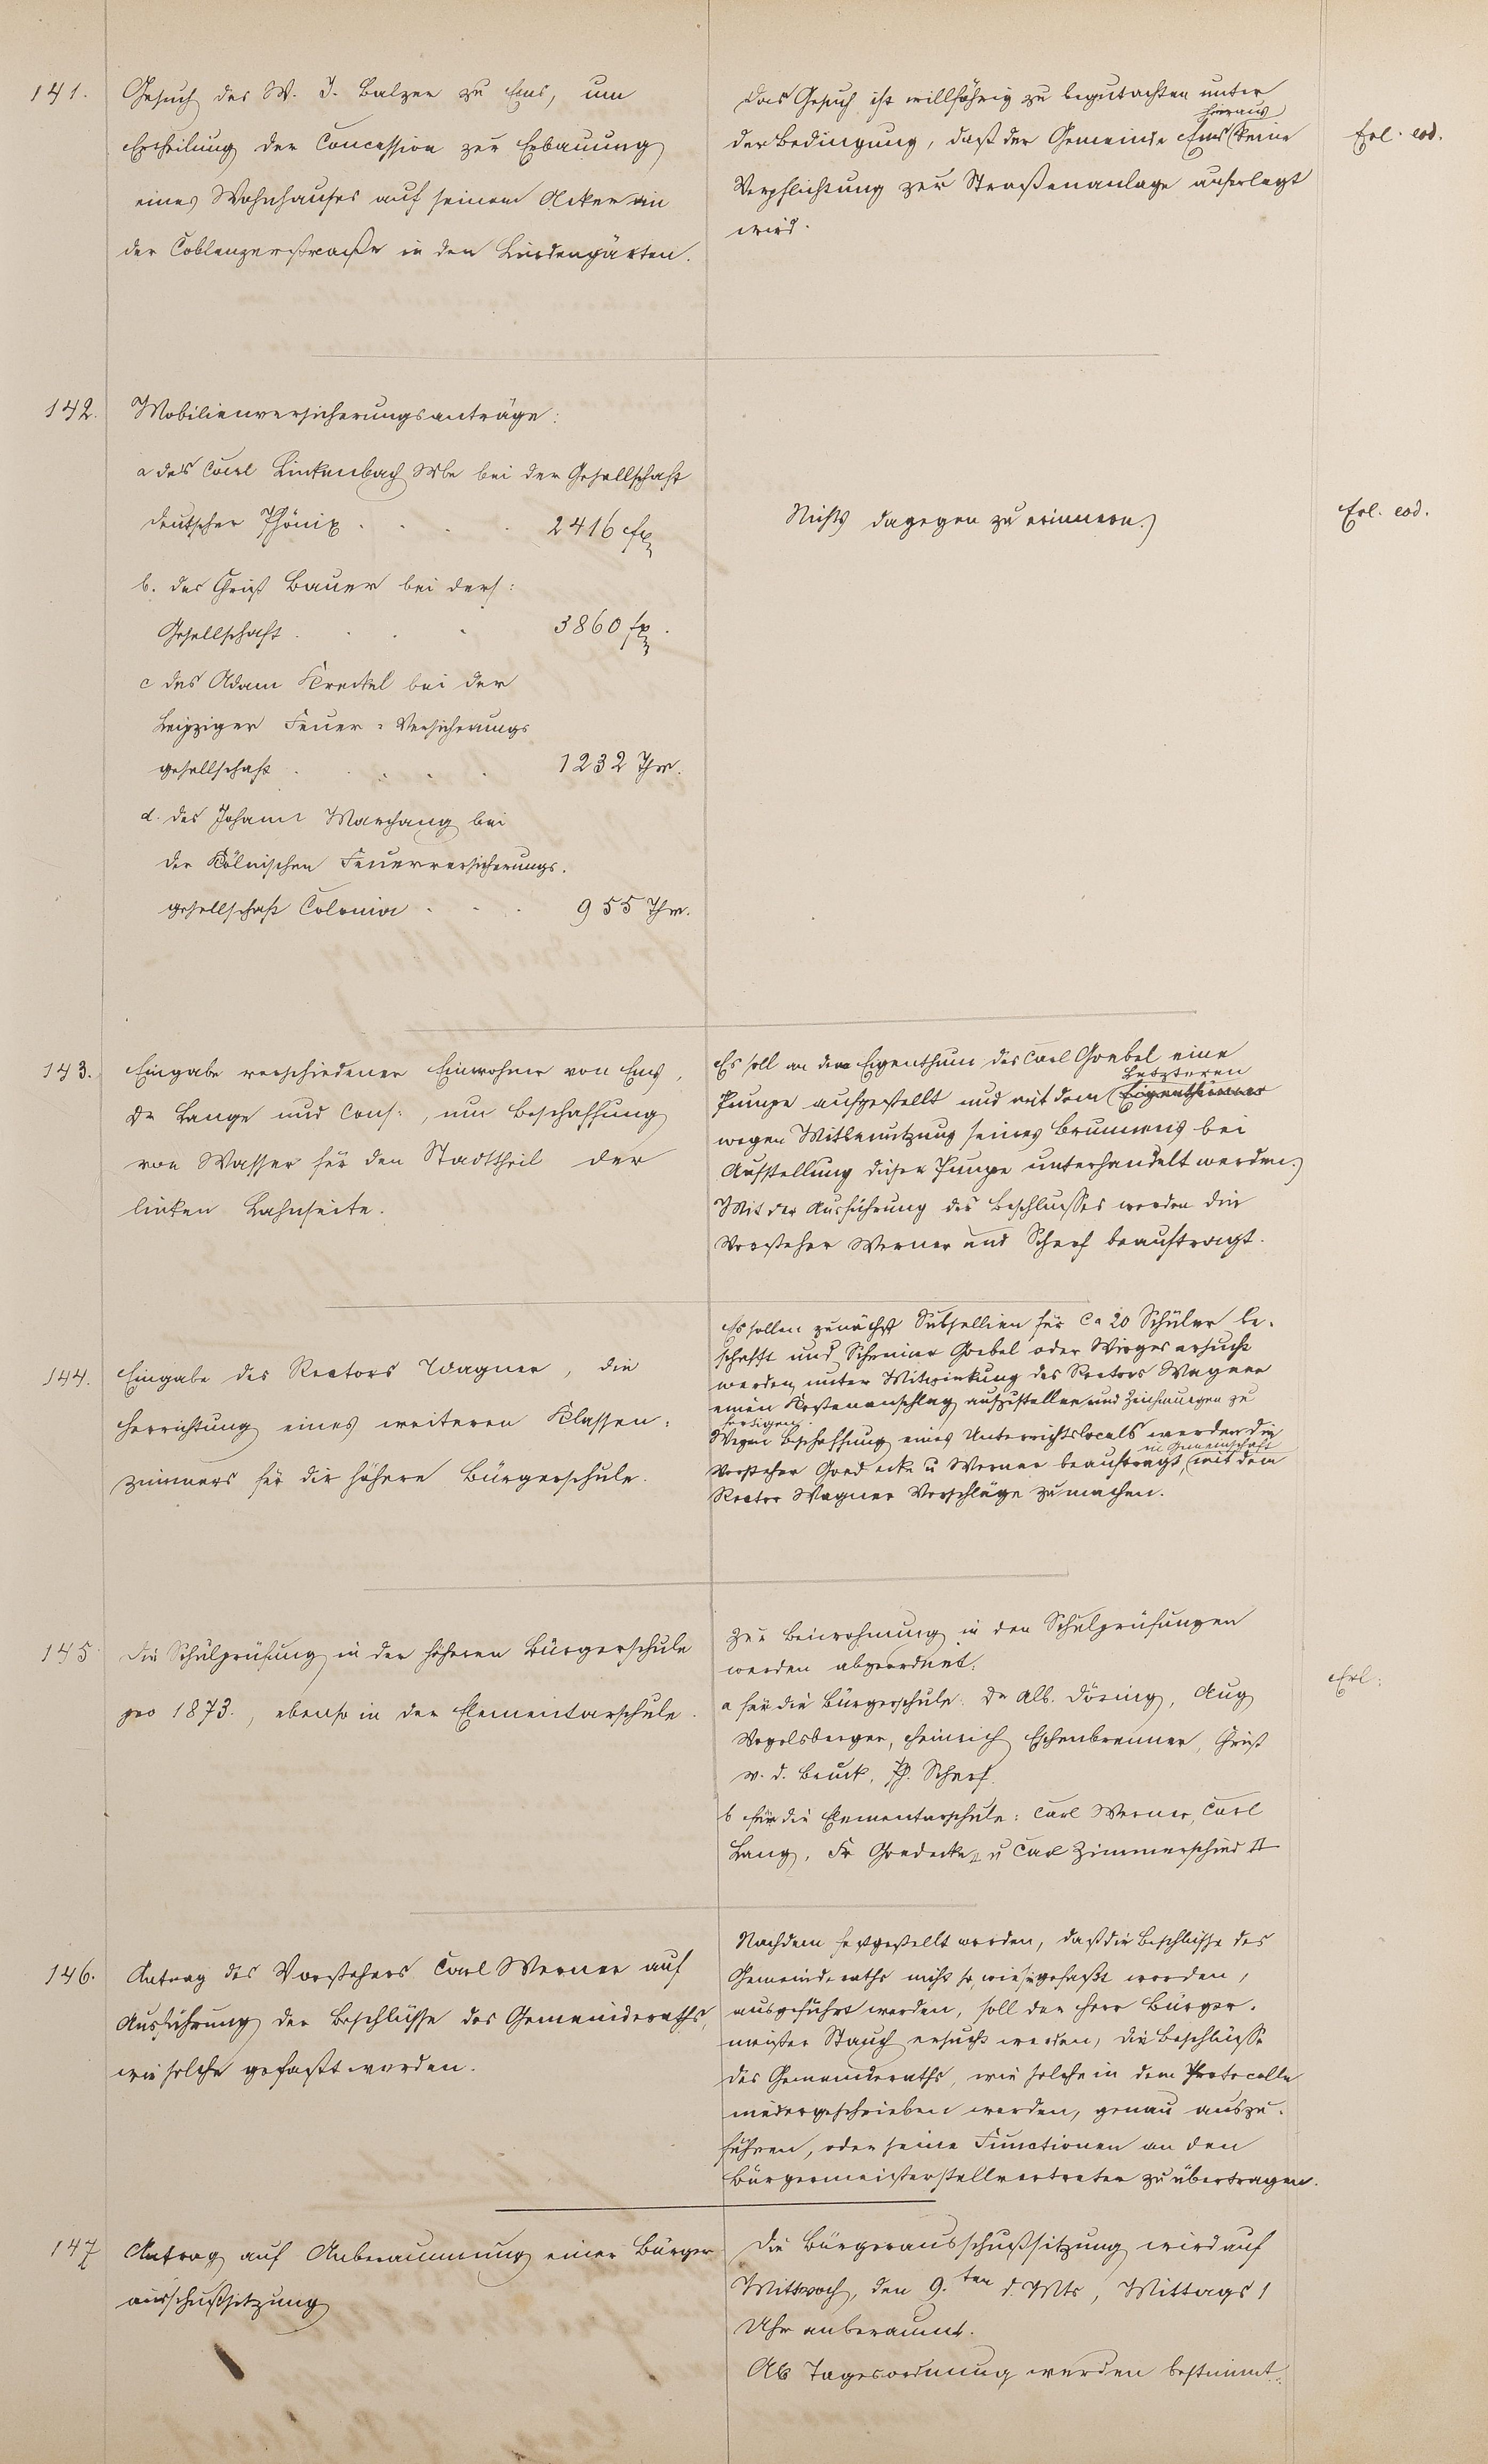 141.
Gesuch des W. J. Balzer zu Ems, um
Ertheilung der Concession zur Erbauung
eines Wohnhauses auf seinem Acker in
der Coblenzerstraße in den Lindengärten.
Das Gesuch ist willfährig zu begutachten unter
hieraus
der Bedingung, daß der Gemeinde Ems keine
Verpflichtung zur Straßenanlage auferlegt
wird.
Erl. eod.
142.
Mobilienversicherungsanträge:
a des Carl Linkenbach Wbe bei der Gesellschaft
deutscher Phönix . . . . 2416 fl
b. des Christ Bauer bei ders:
Gesellschaft . . . . 3860 fl.
c des Adam Kreckel bei der
Leipziger Feuer-Versicherungs
gesellschaft . . . . 1232 Thr.
d. des Johann Marchang bei
der Kölnischen Feuerversicherungs-
gesellschaft Colonia . . . 955 Thr.
Nichts dagegen zu erinnern.
Erl. eod.
143.
Eingabe verschiedener Einwohner von Ems,
Dr Lange und Cons:, um Beschaffung
von Wasser für den Stadttheil der
linken Lahnseite.
Es soll an dem Eigenthum des Carl Goebel eine
Letzteren
Pumpe aufgestellt und mit dem Eigenthümer
wegen Mitbenutzung seines Brunnens bei
Aufstellung dieser Pumpe unterhandelt werden.
Mit der Ausführung des Beschlusses werden die
Vorsteher Werner und Scharf beauftragt.
144.
Eingabe des Rectors Wagner, die
Herrichtung eines weiteren Klassen-
zimmers für die höhere Bürgerschule.
Es sollen zunächst Subsellien für ca 20 Schüler be-
schafft und Schreiner Goebel oder Wirges ersucht
werden, unter Mitwirkung des Rectors Wagner
einen Kostenanschlag aufzustellen und Zeichnungen zu
fertigen.
Wegen Beschaffung eines Unterrichtslocals werden die
in Gemeinschaft
Vorsteher Goedecke u Werner beauftragt, mit dem
Rector Wagner Vorschläge zu machen.
145
Die Schulprüfung in der höheren Bürgerschule
pro 1873., ebenso in der Elementarschule.
Zur Beiwohnung in den Schulprüfungen
werden abgeordnet:
a für die Bürgerschule: Dr Alb. Döring, Aug
Vogelsberger, Heinrich Eschenbrenner, Christ
v. d. Bruck, Ph. Scharf.
b für die Elementarschule: Carl Werner, Carl
Lang, Fr Goedecke, u Carl Zimmerschied II
Erl:
146.
Antrag des Vorstehers Carl Werner auf
Ausführung der Beschlüsse des Gemeinderaths,
wie solche gefaßt werden.
Nachdem festgestellt worden, daß die Beschlüsse des
Gemeinderaths nicht so, wie sie gefaßt worden,
ausgeführt werden, soll der Herr Bürger-
meister Stauch ersucht werden, die Beschlüsse
des Gemeinderaths, wie solche in dem Protocolle
niedergeschrieben werden, genau auszu-
führen, oder seine Functionen an den
Bürgermeisterstellvertreter zu übertragen.
147
Antrag auf Anberaumung einer Bürger
ausschußsitzung
Die Bürgerausschußsitzung wird auf
Mittwoch, den 9.ten d Mts, Mittags 1
Uhr anberaumt.
Als Tagesordnung werden bestimmt: